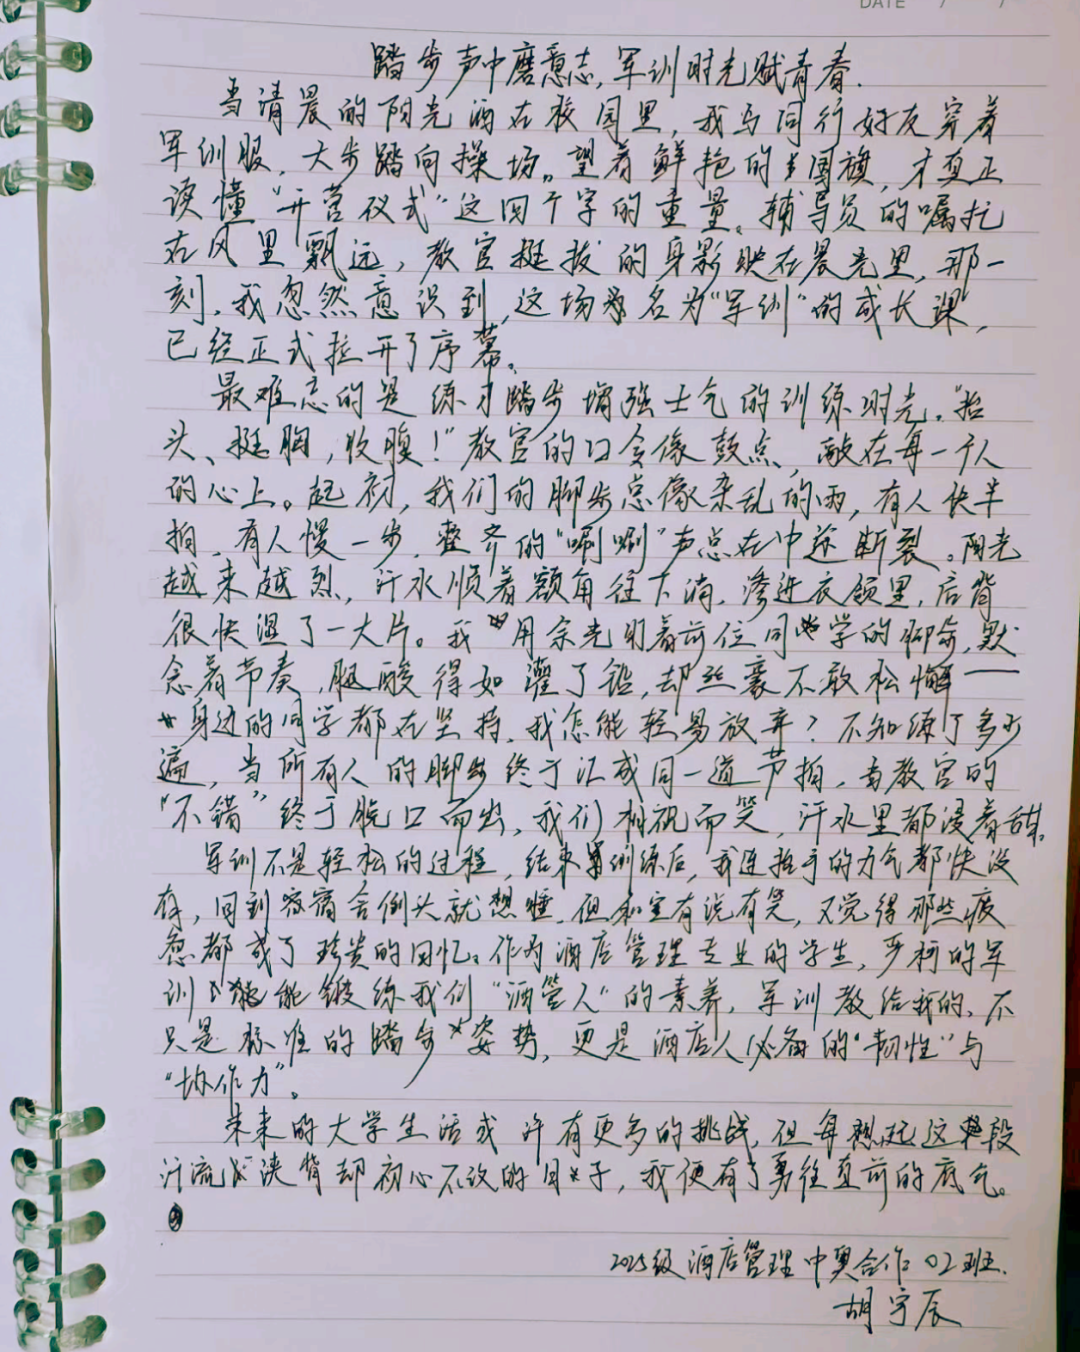 DATE / /
踏步声中磨意志,军训时光赋青春.
当清晨的阳光洒在校园里,我与同行好友穿着
军训服,大步踏向操场。望着鲜艳的国旗,才真正
读懂“开营仪式”这四个字的重量。辅导员的嘱托
在风里飘远,教官挺拔的身影映在晨光里,那一
刻,我忽然意识到,这场名为“军训”的成长课,
已经正式拉开了序幕。
最难忘的是练习踏步增强士气的训练时光.“抬
头、挺胸,收腹!”教官的口令像鼓点,敲在每一个人
的心上。起初,我们的脚步总像杂乱的雨,有人快半
拍,有人慢一步,整齐的“唰唰”声总在中途断裂。阳光
越来越烈,汗水顺着额角往下淌,渗进衣领里,后背
很快湿了一大片。我用余光盯着前位同学的脚步,默
念着节奏,腿酸得如灌了铅,却丝豪不敢松懈——
身边的同学都在坚持,我怎能轻易放弃?不知练了多少
遍,当所有人的脚步终于汇成同一道节拍,当教官的
“不错”终于脱口而出,我们相视而笑,汗水里都浸着甜.
军训不是轻松的过程,结束训练后,我连抬手的力气都快没
有,回到宿舍倒头就想睡,但和室友说有笑,又觉得那些疲
惫都成了珍贵的回忆。作为酒店管理专业的学生,严柯的军
训能锻练我们“酒管人”的素养,军训教给我的,不
只是标准的踏步姿势,更是酒店人必备的“韧性”与
“协作力”。
未来的大学生活或许有更多的挑战,但每想起这段
汗流浃背却初心不改的日子,我便有了勇往直前的底气。
2025级酒店管理中奥合作02班.
胡宇辰